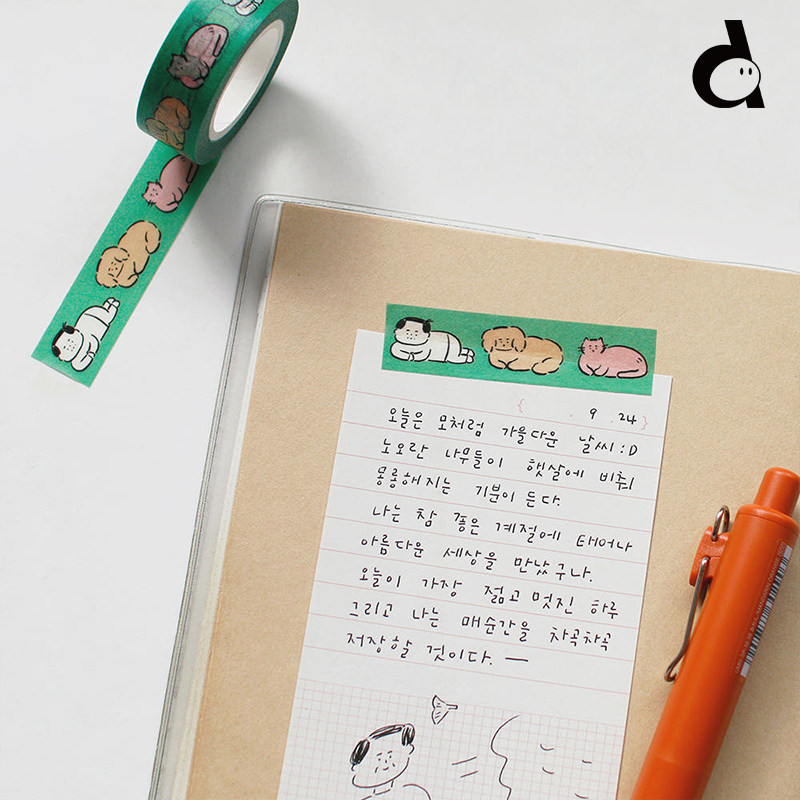 { . 9 . 24 }
오늘은 모처럼 가을다운 날씨 :D
노오란 나무들이 햇살에 비춰
몽롱해지는 기분이 든다.
나는 참 좋은 계절에 태어나
아름다운 세상을 만났구나.
오늘이 가장 젊고 멋진 하루
그리고 나는 매순간을 차곡차곡
저장할 것이다. —